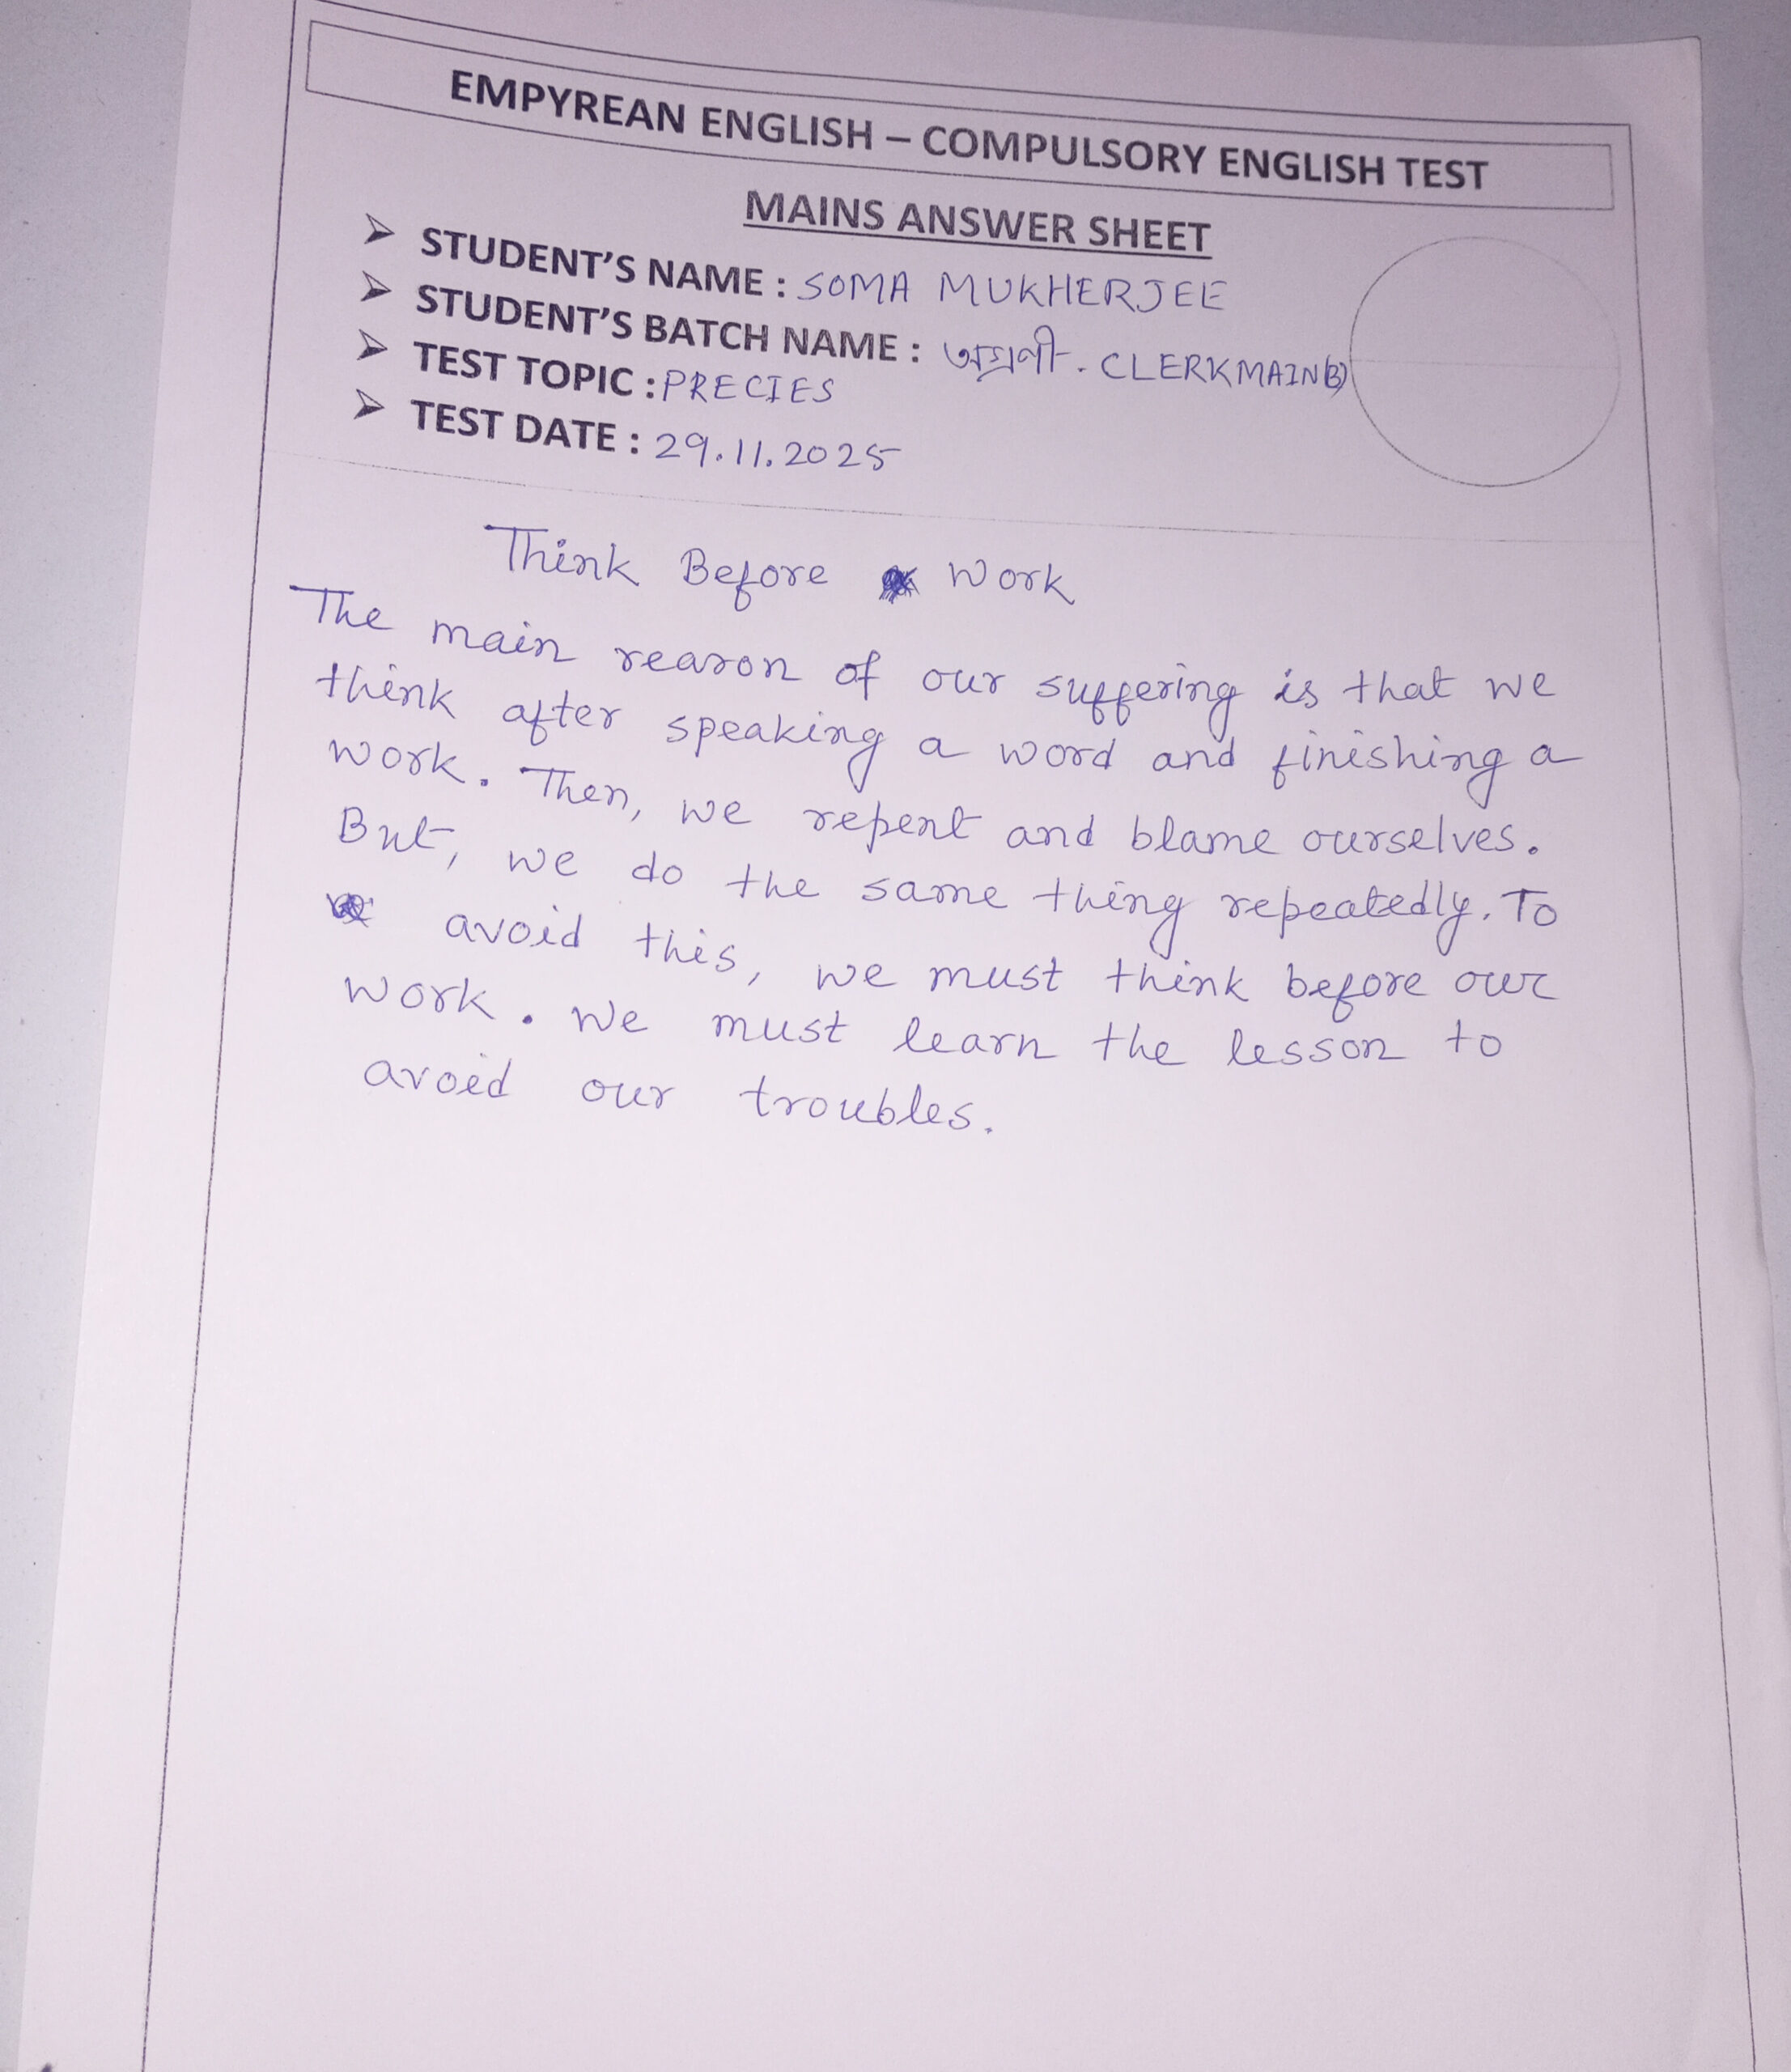 EMPYREAN ENGLISH – COMPULSORY ENGLISH TEST
MAINS ANSWER SHEET
➢ STUDENT'S NAME : SOMA MUKHERJEE
➢ STUDENT'S BATCH NAME : অগ্রণী. CLERKMAIN(B)
➢ TEST TOPIC : PRECIES
➢ TEST DATE : 29.11.2025
Think Before Work
The main reason of our suffering is that we
think after speaking a word and finishing a
work. Then, we repent and blame ourselves.
But, we do the same thing repeatedly. To
avoid this, we must think before our
work. We must learn the lesson to
avoid our troubles.